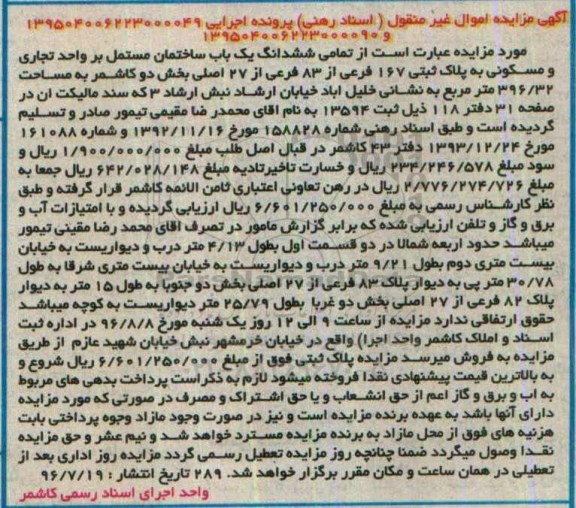 آگهی مزایده اموال غیر منقول ( اسناد رهنی) پرونده اجرایی ۱۳۹۵۰۴۰۰۶۲۲۳۰۰۰۰۴۹
و ۱۳۹۵۰۴۰۰۶۲۲۳۰۰۰۰۹۰
مورد مزایده عبارت است از تمامی ششدانگ یک باب ساختمان مستمل بر واحد تجاری
و مسکونی به پلاک ثبتی ۱۶۷ فرعی از ۸۳ فرعی از ۲۷ اصلی بخش دو کاشمر به مساحت
۳۹۶/۳۲ متر مربع به نشانی خلیل اباد خیابان ارشاد نبش ارشاد ۳ که سند مالیکت ان در
صفحه ۳۱ دفتر ۱۱۸ ذیل ثبت ۱۳۵۹۴ به نام اقای محمدر ضا مقیمی تیمور صادر و تسلیم
گردیده است و طبق اسناد رهنی شماره ۱۵۸۸۲۸ مورخ ۱۳۹۲/۱۱/۱۶ و شماره ۱۶۱۰۸۸
مورخ ۱۳۹۳/۱۲/۲۴ دفتر ۴۳ کاشمر در قبال اصل طلب مبلغ ۱/۹۰۰/۰۰۰/۰۰۰ ریال و
سود مبلغ ۲۳۴/۲۴۶/۵۷۸ ریال و خسارت تاخیرتادیه مبلغ ۶۴۲/۰۲۸/۱۴۸ ریال جمعا به
مبلغ ۲/۷۷۶/۲۷۴/۷۲۶ ریال در رهن تعاونی اعتباری ثامن الائمه کاشمر قرار گرفته و طبق
نظر کارشناس رسمی به مبلغ ۶/۶۰۱/۲۵۰/۰۰۰ ریال ارزیابی گردیده و با امتیازات آب و
برق و گاز و تلفن ارزیابی شده که برابر گزارش مامور در تصرف اقای محمد رضا مقینی تیمور
میباشد حدود اربعه شمالا در دو قسمت اول بطول ۴/۱۳ متر درب و دیواریست به خیابان
بیست متری دوم بطول ۹/۲۱ متر درب و دیواریست به خیابان بیست متری شرقا به طول
۳۰/۷۸ متر پی به دیوار پلاک ۸۳ فرعی از ۲۷ اصلی بخش دو جنوبا به طول ۱۵ متر به دیوار
پلاک ۸۲ فرعی از ۲۷ اصلی بخش دو غربا بطول ۲۵/۷۹ متر دیواریست به کوچه میباشد
حقوق ارتفاقی ندارد مزایده از ساعت ۹ الی ۱۲ روز یک شنبه مورخ ۹۶/۸/۸ در اداره ثبت
اسناد و املاک کاشمر واحد اجرا) واقع در خیابان خرمشهر نبش خیابان شهید عازم از طریق
مزایده به فروش میرسد مزایده پلاک ثبتی فوق از مبلغ ۶/۶۰۱/۲۵۰/۰۰۰ ریال شروع و
به بالاترین قیمت پیشنهادی نقدا فروخته میشود لازم به ذکر است پرداخت بدهی های مربوط
به اب و برق و گاز اعم از حق انشعاب و یا حق اشتراک و مصرف در صورتی که مورد مزایده
دارای آنها باشد به عهده برنده مزایده است و نیز در صورت وجود مازاد وجوه پرداختی بابت
هزنیه های فوق از محل مازاد به برنده مزایده مسترد خواهد شد و نیم عشر و حق مزایده
نقدا وصول میگردد ضمنا چنانچه روز مزایده تعطیل رسمی گردد مزایده روز اداری بعد از
تعطیلی در همان ساعت و مکان مقرر برگزار خواهد شد. ۲۸۹ تاریخ انتشار : ۹۶/۷/۱۹
واحد اجرای اسناد رسمی کاشمر